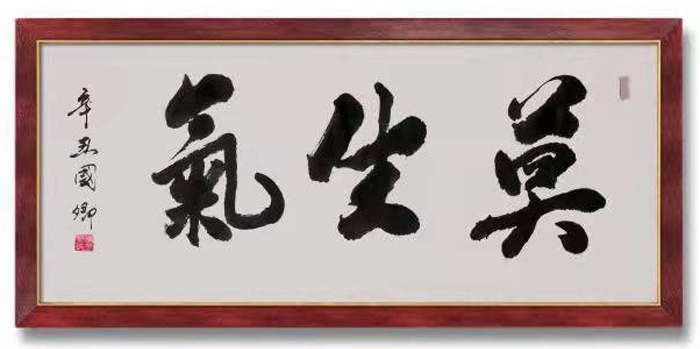 莫生氣
辛丑國卿